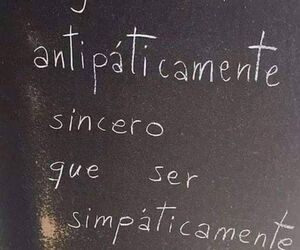 antipáticamente
sincero
que ser
simpáticamente